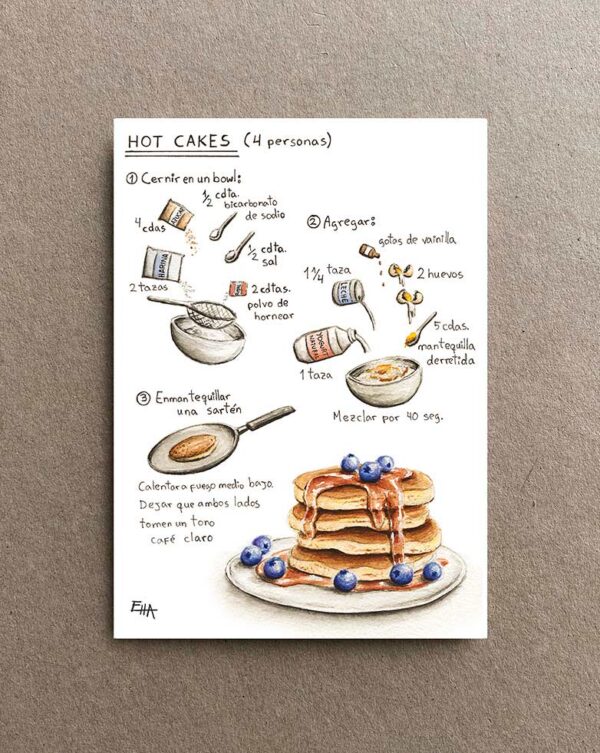 HOT CAKES (4 personas)
① Cernir en un bowl:
1/2 cdta.
bicarbonato
de sodio
AZUCAR
4 cdas
1/2 cdta.
sal
HARINA
2 tazas
2 cdtas.
polvo de
hornear
② Agregar:
gotas de vainilla
1 1/4 taza
LECHE
2 huevos
YOGURT
NATURAL
1 taza
5 cdas.
mantequilla
derretida
Mezclar por 40 seg.
③ Enmantequillar
una sartén
Calentar a fuego medio bajo.
Dejar que ambos lados
tomen un tono
café claro